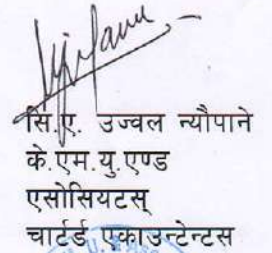 सि.ए. उज्वल न्यौपाने
के.एम.यु.एण्ड
एसोसियटस्
चार्टर्ड एकाउन्टेन्टस